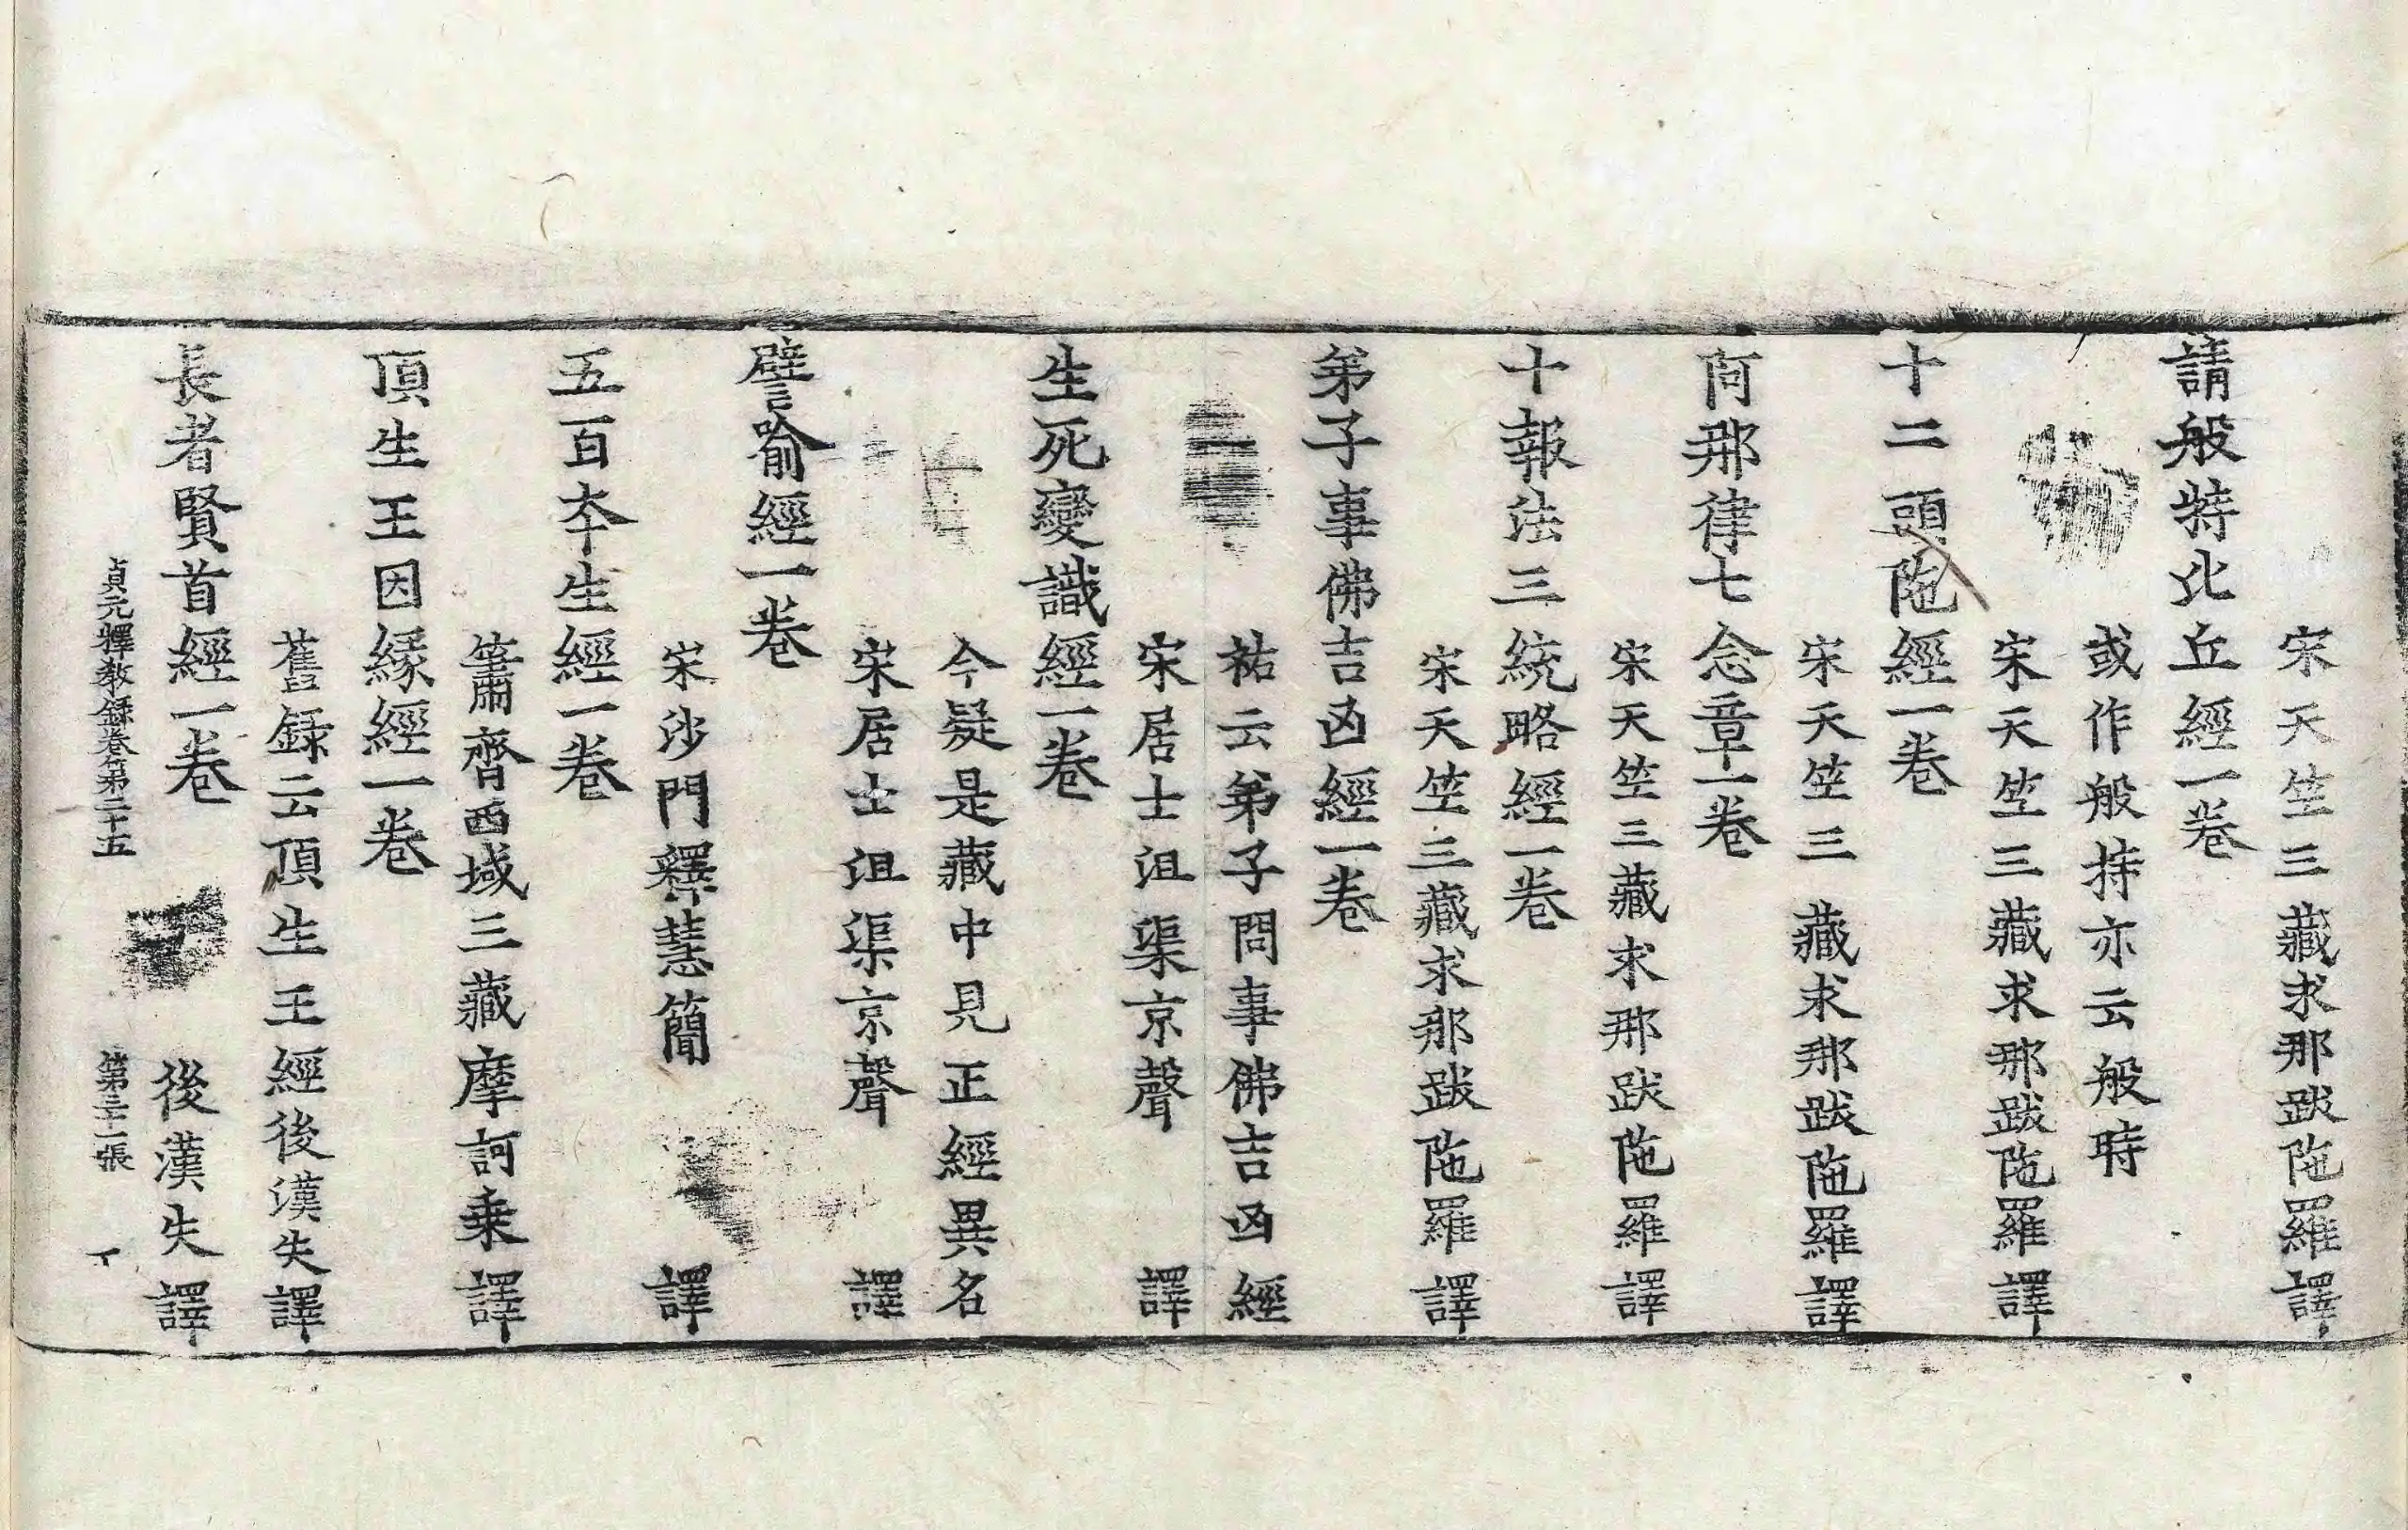 宋天竺三藏求那跋陁羅譯
請般特比丘經一卷
或作般持亦云般時
宋天竺三藏求那跋陁羅譯
十二頭陁經一卷
宋天竺三藏求那跋陁羅譯
阿那律七念章一卷
宋天竺三藏求那跋陁羅譯
十報法三統略經一卷
宋天竺三藏求那跋陁羅譯
弟子事佛吉凶經一卷
祐云弟子問事佛吉凶經
宋居士沮渠京聲譯
生死變識經一卷
今疑是藏中見正經異名
宋居士沮渠京聲譯
譬喻經一卷
宋沙門釋慧簡譯
五百夲生經一卷
簫齊西域三藏摩訶乗譯
頂生王因緣經一卷
舊録云頂生王經後漢失譯
長者賢首經一卷後漢失譯
貞元釋教録卷第二十五 第三十二張